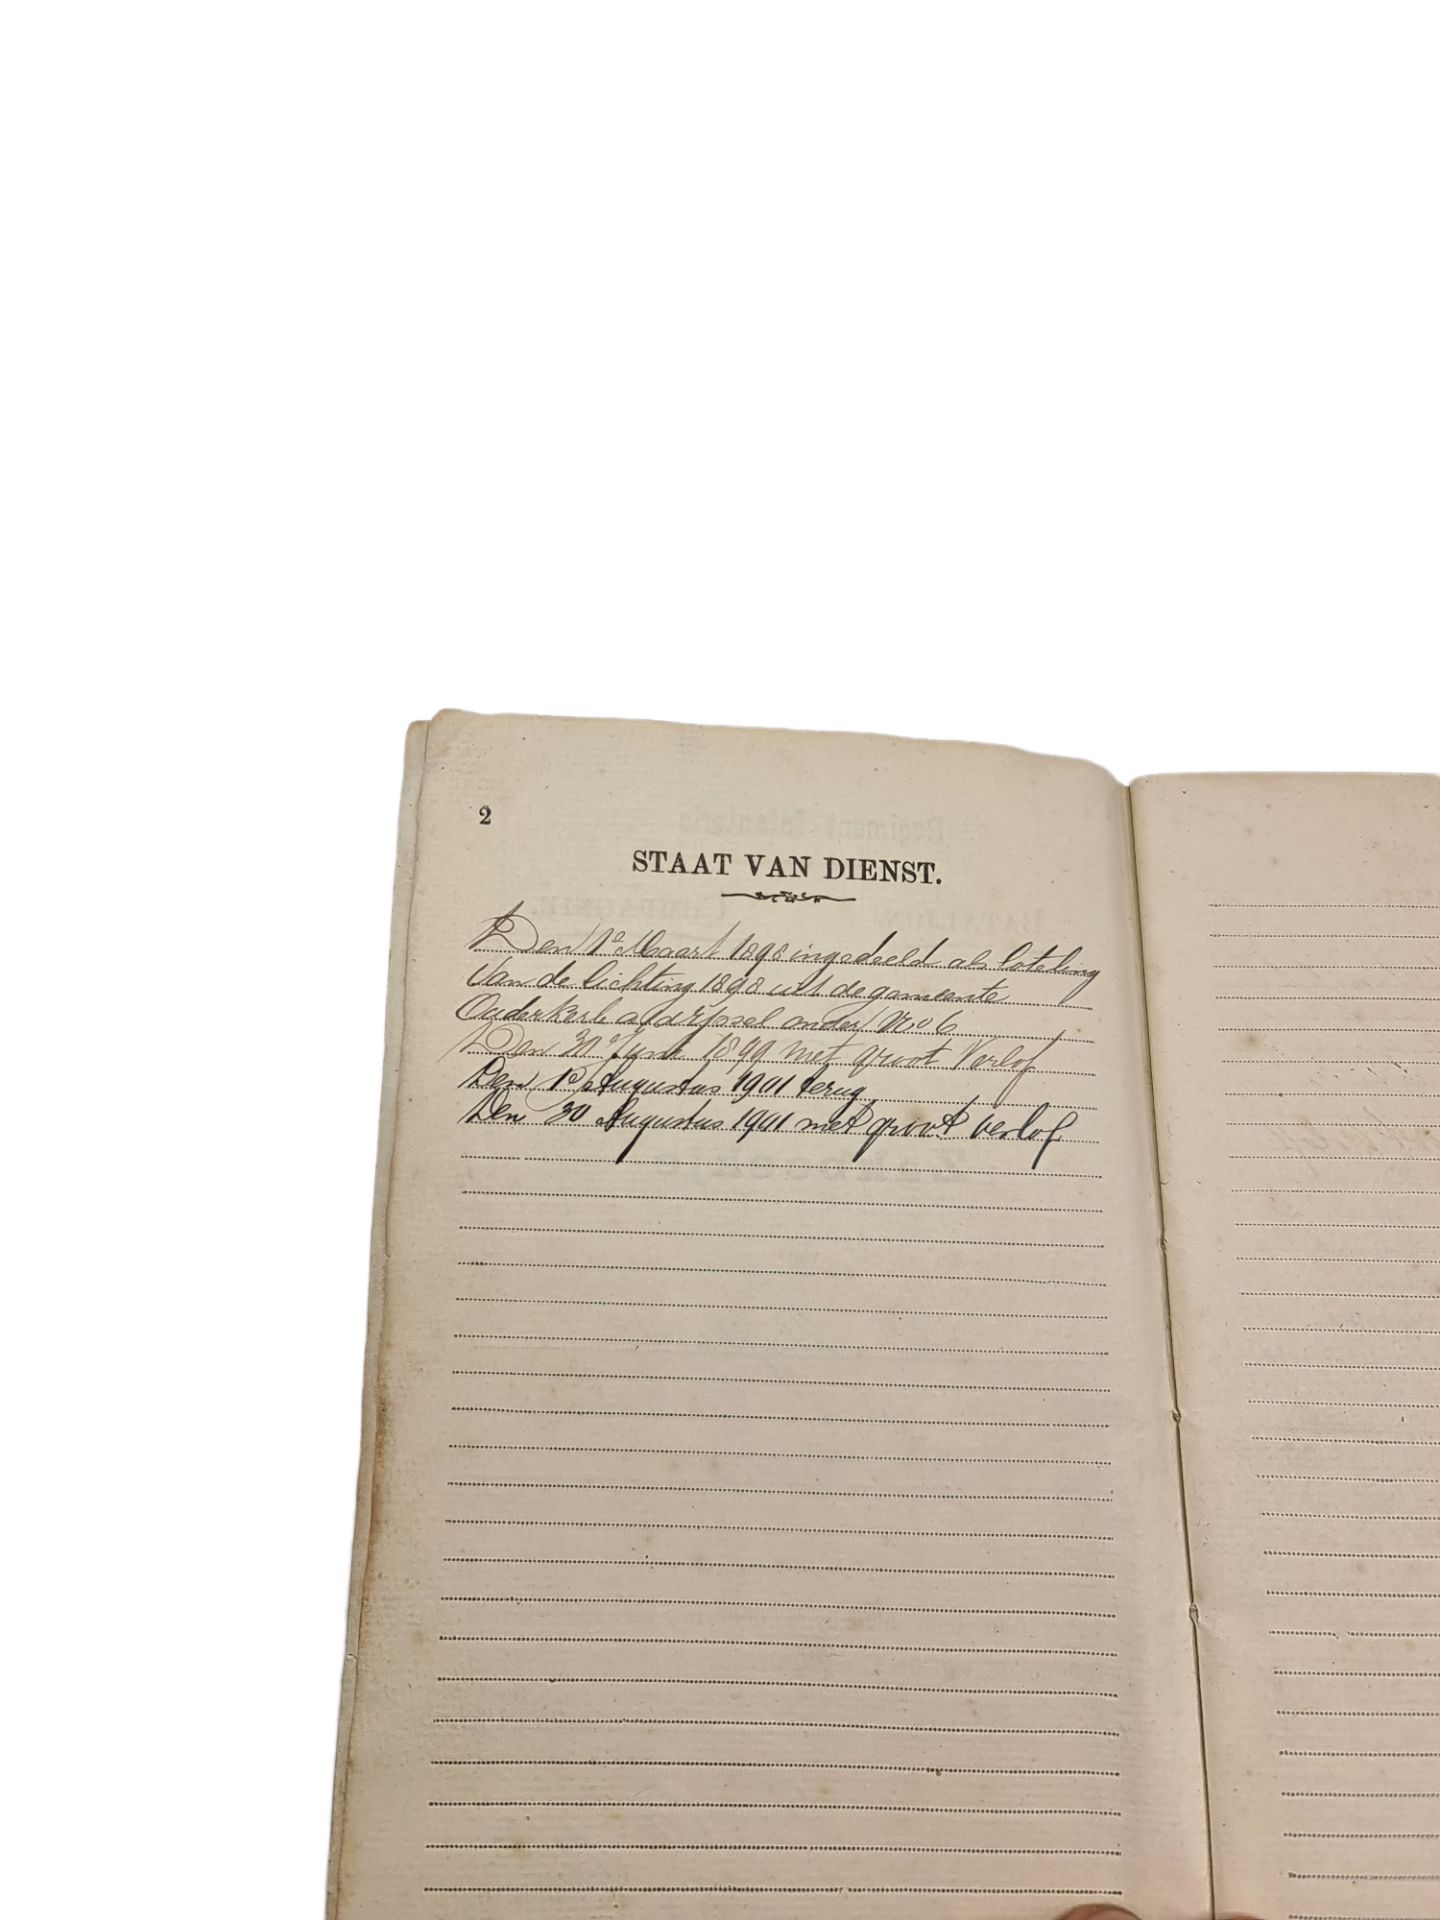 2
STAAT VAN DIENST.
Den 1e Maart 1898 ingedeeld als loteling
van de lichting 1898 uit de gemeente
Ouderkerk a/d IJssel onder No 6
Den 30 Juni 1899 met groot Verlof
Den 15 Augustus 1901 terug
Den 30 Augustus 1901 met groot verlof